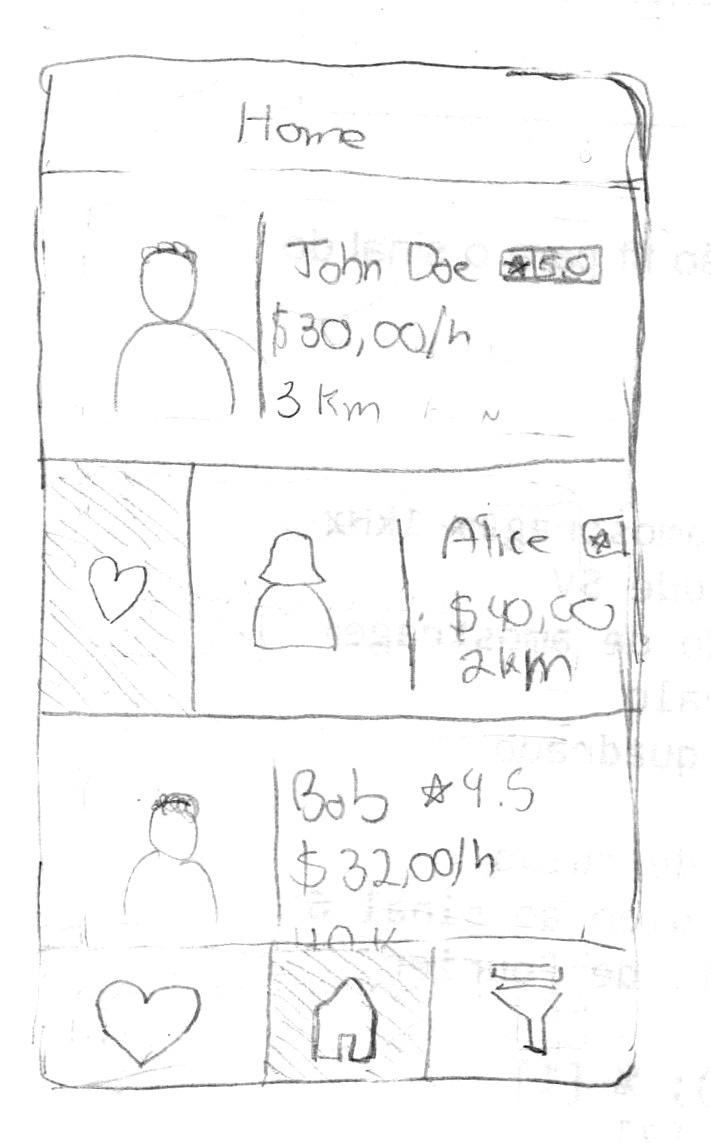 Home
John Doe ★ 5.0
$30,00/h
3 Km
Alice ★
$40,00
2km
Bob ★ 4.5
$32,00/h